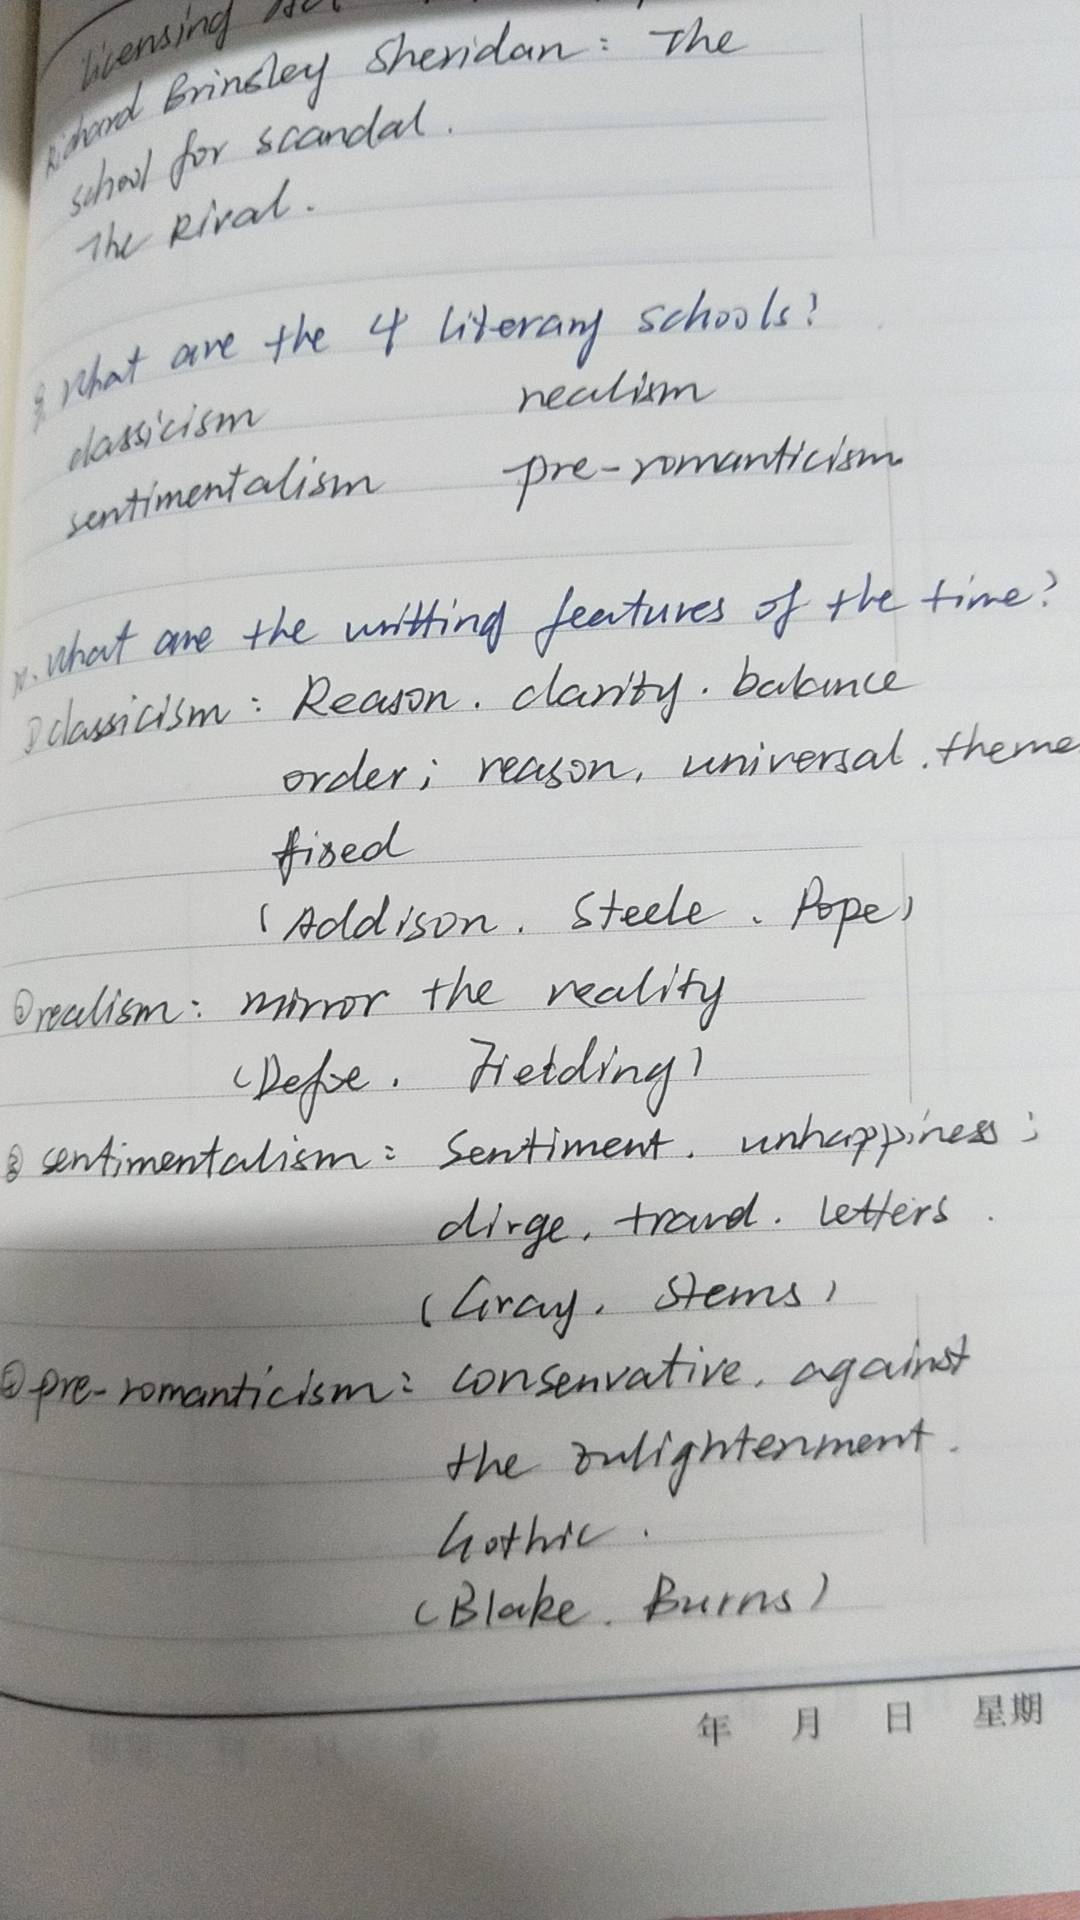 licensing Act
Richard Brinsley Sheridan: The
school for scandal.
The Rival.
9. What are the 4 literary schools?
classicism realism
sentimentalism pre-romanticism
What are the writting features of the time?
①classicism: Reason. clarity. balance
order; reason, universal. theme
fixed
(Addison. Steele. Pope)
②realism: mirror the reality
(Defoe. Fielding)
③ sentimentalism: Sentiment. unhappiness;
dirge, travel. letters.
(Gray. Sterns)
④ pre-romanticism: conservative. against
the enlightenment.
Gothic.
(Blake. Burns)
年 月 日 星期